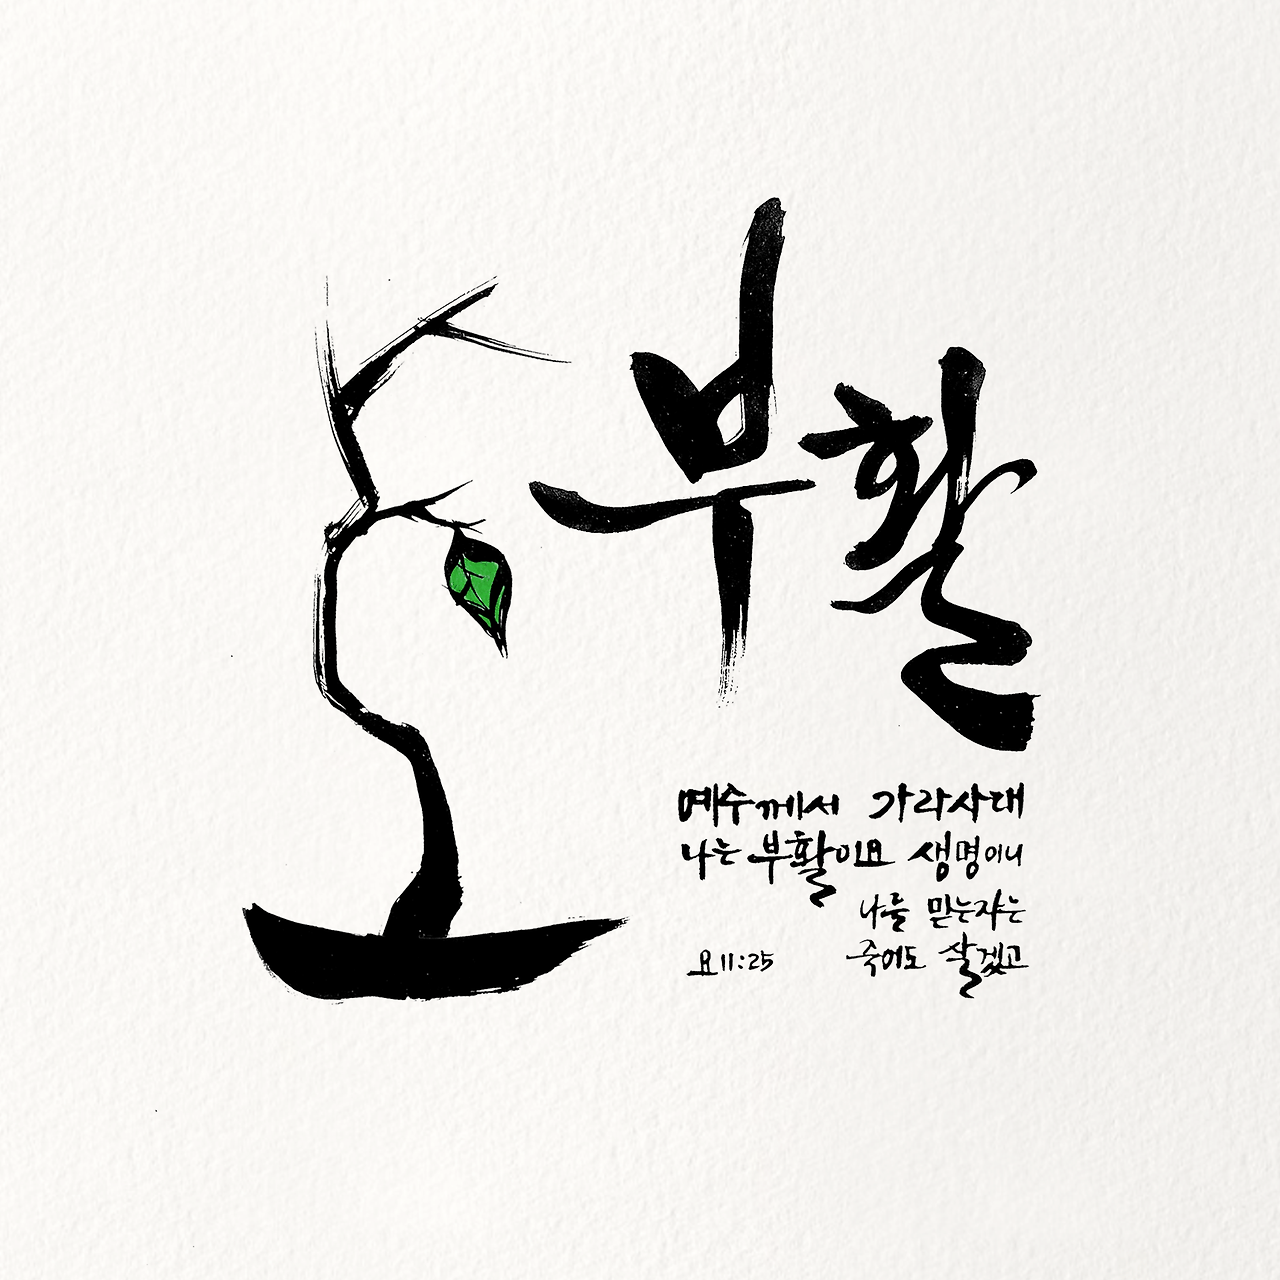 부활
예수께서 가라사대
나는 부활이요 생명이니
나를 믿는자는
죽어도 살겠고
요11:25